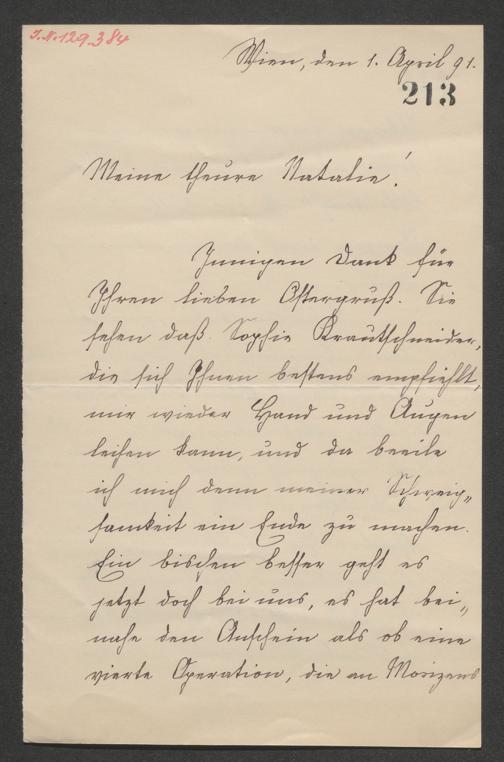 J.N. 129.384
Wien, den 1. April 91.
213
Meine theure Natalie!
Innigen Dank für
Ihren lieben Ostergruß. Sie
sehen daß Sophie Krautschneider,
die sich Ihnen bestens empfiehlt,
mir wieder Hand und Augen
leihen kann, und da beeile
ich mich denn meiner Schweig„
samkeit ein Ende zu machen.
Ein bischen besser geht es
jetzt doch bei uns, es hat bei„
nahe den Anschein als ob eine
vierte Operation, die an Morizens